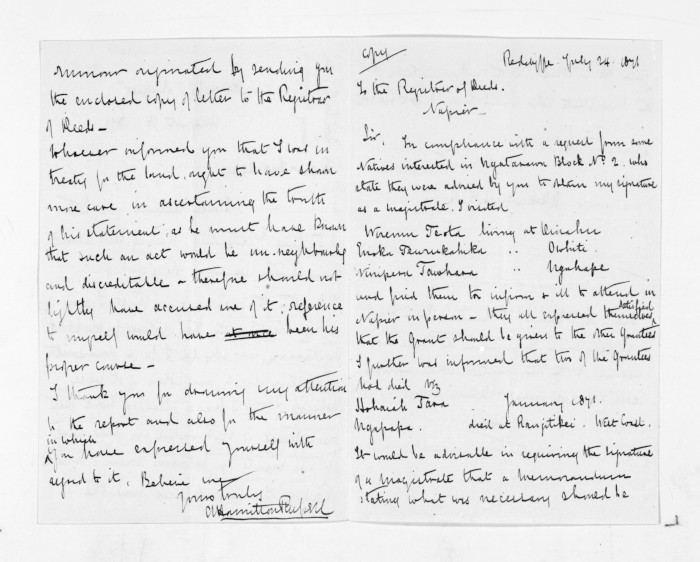 rumour originated by sending you
the enclosed copy of letter to the Registrar
of Deeds -
Whoever informed you that I was in
treaty for the land, ought to have shown
more care in ascertaining the truth
of his statement, as he must have known
that such an act would be un-neighbourly
and discreditable & therefore should not
lightly have accused me of it; reference
to myself would have at once been his
proper course -
I thank you for drawing my attention
to the report and also for the manner
in which
you have expressed yourself with
regard to it. Believe me
Yours truly
Hamilton Russell
Copy
Redclyffe July 24 1871
To the Registrar of Deeds.
Napier -
Sir. In compliance with a request from some
Natives interested in Ngatarawa Block No. 2. who
state they were advised by you to obtain my signature
as a magistrate, I visited.
Wiremu living at
Enoka " Ohiti
" Ngahape
and find them too infirm & ill to attend in
Napier in person - they all expressed themselves
satisfied
that the Grant should be given to the other Grantees
I further was informed that two of the Grantees
had died viz
Tara January 1871.
Ngapapa. died at Rangitikei. West Coast.
It would be advisable in requiring the signature
of a magistrate that a Memorandum
stating what was necessary should be